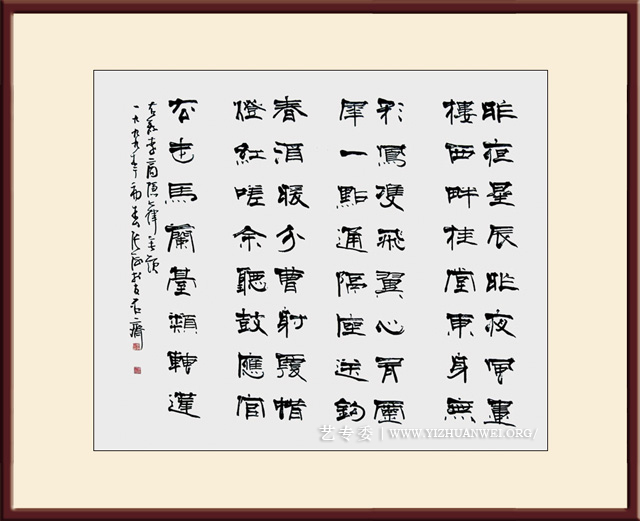 昨夜星辰昨夜風畫
樓西畔桂堂東身無
彩鳳雙飛翼心有靈
犀一點通隔座送鈎
春酒暖分曹射覆蜡
燈紅嗟余聽鼓應官
去走馬蘭臺類轉蓬
李商隱七律無題
一九九九年
艺专委 | WWW.YIZHUANWEI.ORG/